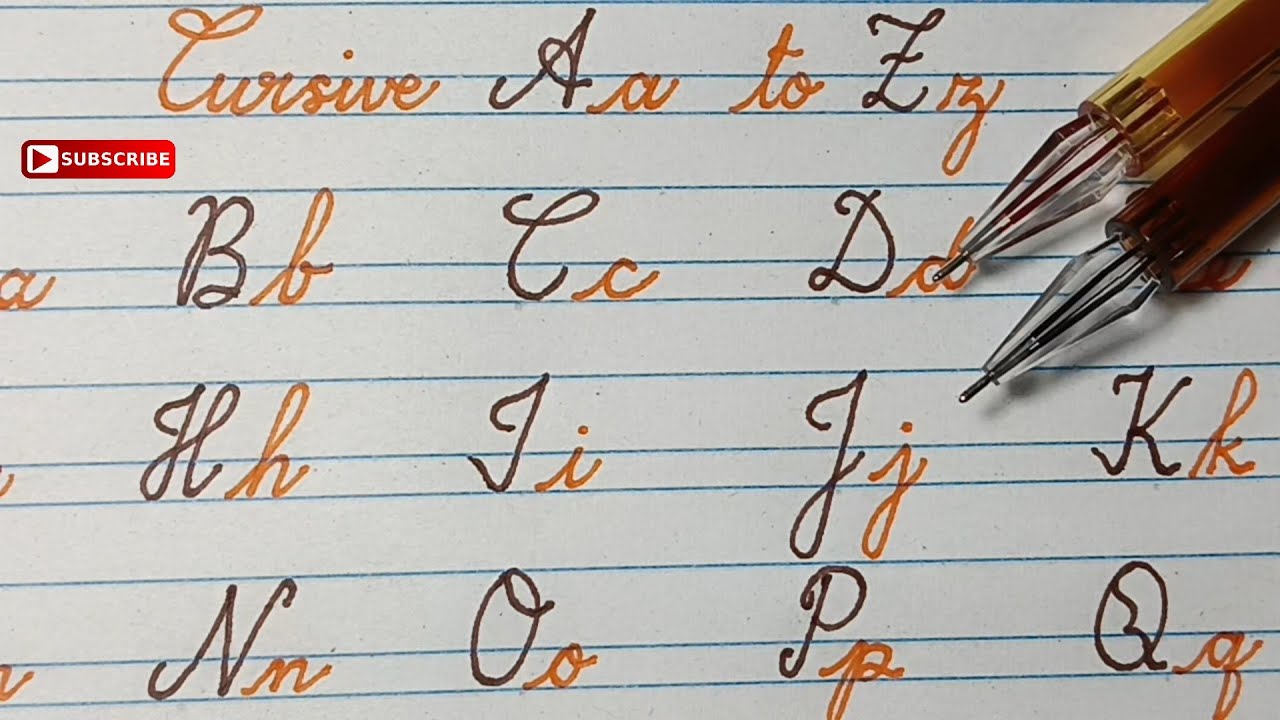 Cursive Aa to Zz
SUBSCRIBE
a Bb Cc Dd e
Hh Ii Jj Kk
Nn Oo Pp Qq